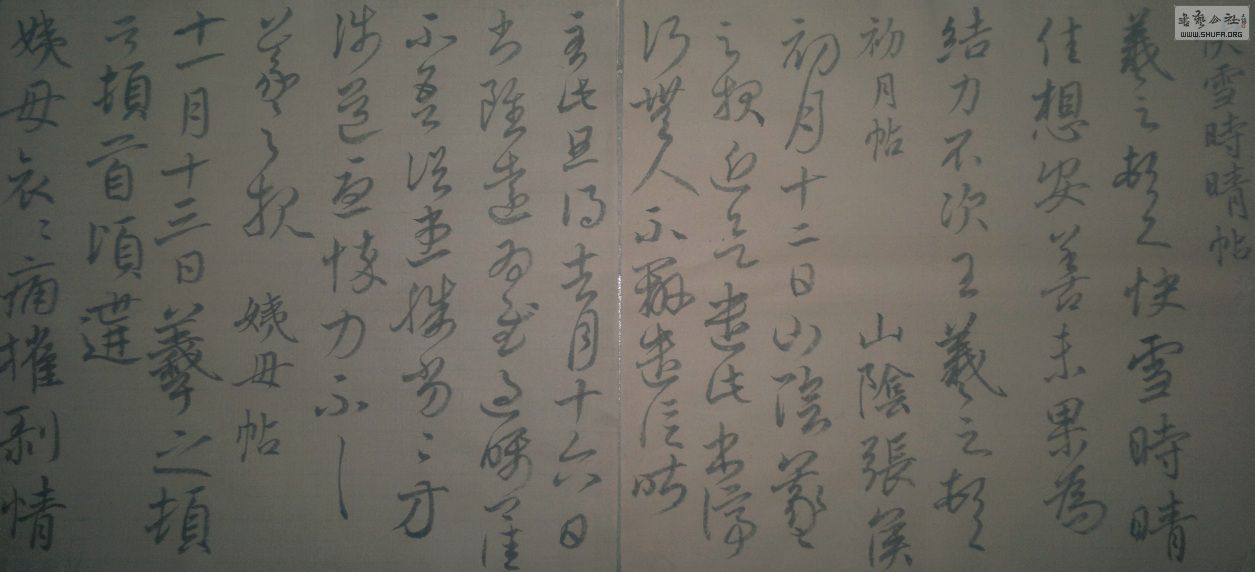 書藝公社
WWW.SHUFA.ORG
快雪時晴帖
羲之頓首快雪時晴
佳想安善未果為
結力不次王羲之頓首
初月帖 山陰張侯
初月十二日山陰羲之
之報近欲遣此書停
行無人不辦遣信昨
至此旦得去月十六日
書雖遠為慰過囑
不吾諸患殊劣〻方
涉道憂悴力不具
羲之報 姨母帖
十一月十三日羲之頓
首頓首頃遘
姨母哀〻痛摧剝情